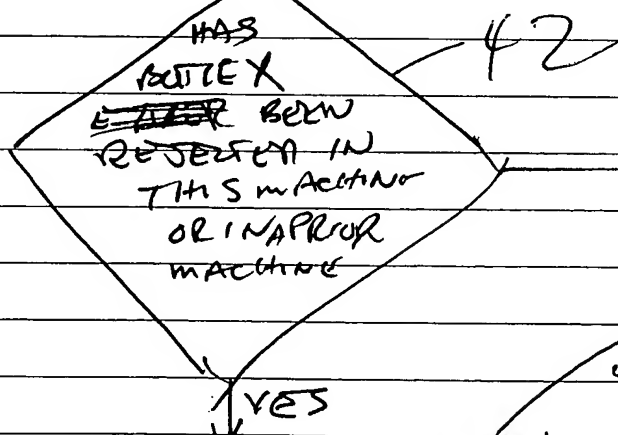 HAS
42
BOTTLE X
BEEN
REJECTED IN
THIS MACHINE
OR IN A PRIOR
MACHINE
YES